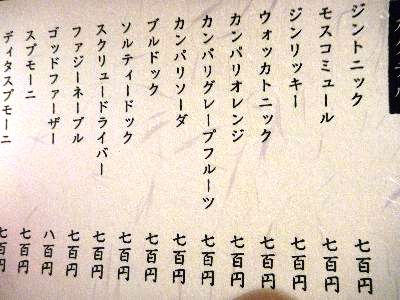 カクテル
ジントニック 七百円
モスコミュール 七百円
ジンリッキー 七百円
ウォッカトニック 七百円
カンパリオレンジ 七百円
カンパリグレープフルーツ 七百円
カンパリソーダ 七百円
ブルドック 七百円
ソルティードック 七百円
スクリュードライバー 七百円
ファジーネーブル 七百円
ゴッドファーザー 八百円
スプモーニ 七百円
ディタスプモーニ 七百円